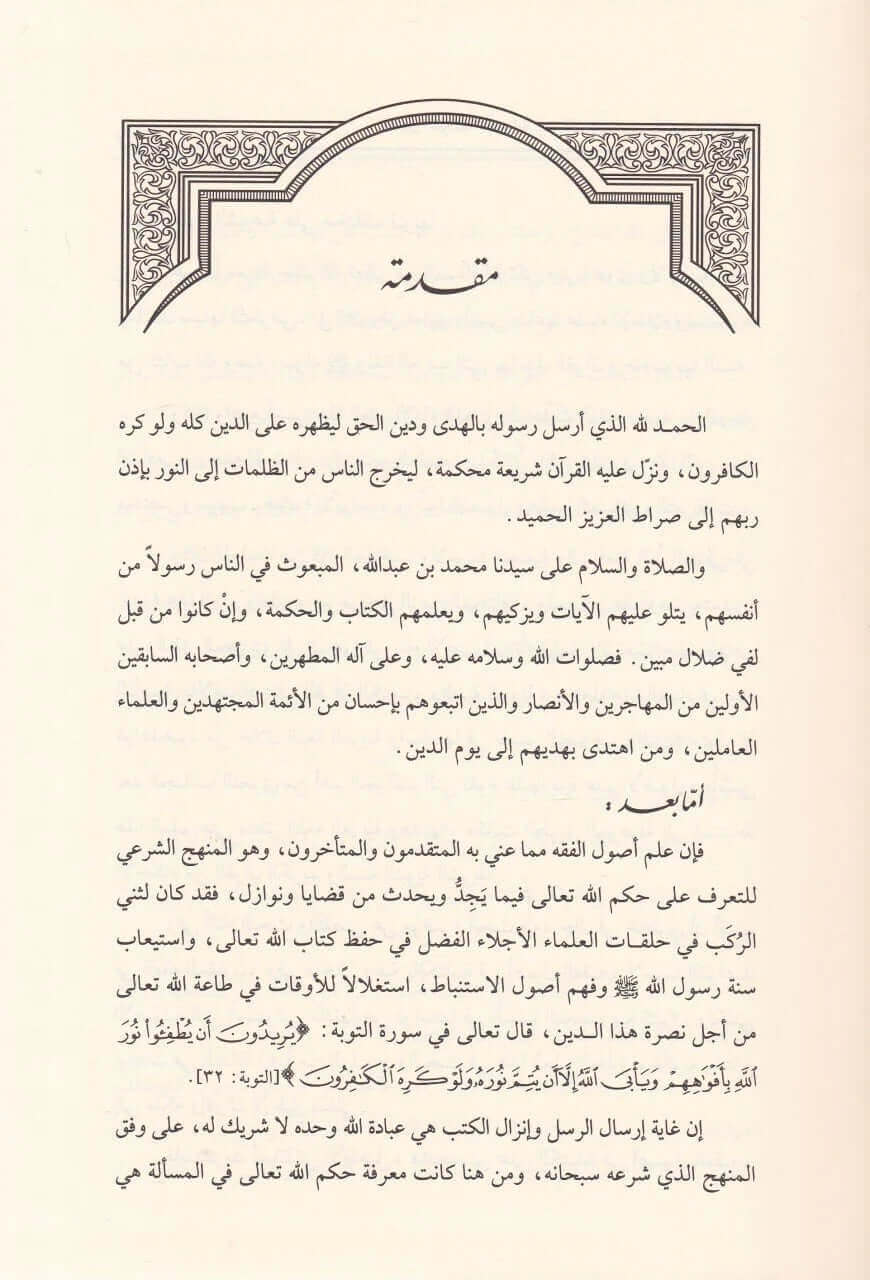 مقدمة
الحمد لله الذي أرسل رسوله بالهدى ودين الحق ليظهره على الدين كله ولو كره
الكافرون، ونزّل عليه القرآن شريعة محكمة، ليخرج الناس من الظلمات إلى النور بإذن
ربهم إلى صراط العزيز الحميد.
والصلاة والسلام على سيدنا محمد بن عبدالله، المبعوث في الناس رسولاً من
أنفسهم، يتلو عليهم الآيات ويزكيهم، ويعلمهم الكتاب والحكمة، وإنْ كانوا من قبل
لفي ضلال مبين. فصلوات الله وسلامه عليه، وعلى آله المطهرين، وأصحابه السابقين
الأولين من المهاجرين والأنصار والذين اتبعوهم بإحسان من الأئمة المجتهدين والعلماء
العاملين، ومن اهتدى بهديهم إلى يوم الدين.
أمّا بعد:
فإن علم أصول الفقه مما عني به المتقدمون والمتأخرون، وهو المنهج الشرعي
للتعرف على حكم الله تعالى فيما يَجِدُّ ويحدث من قضايا ونوازل، فقد كان لثني
الرُكَب في حلقات العلماء الأجلاء الفضل في حفظ كتاب الله تعالى، واستيعاب
سنة رسول الله ﷺ وفهم أصول الاستنباط، استغلالاً للأوقات في طاعة الله تعالى
من أجل نصرة هذا الدين، قال تعالى في سورة التوبة: ﴿يُرِيدُونَ أَن يُطْفِـُٔوا۟ نُورَ
ٱللَّهِ بِأَفْوَٰهِهِمْ وَيَأْبَى ٱللَّهُ إِلَّآ أَن يُتِمَّ نُورَهُۥ وَلَوْ كَرِهَ ٱلْكَٰفِرُونَ﴾ [التوبة: ٣٢].
إن غاية إرسال الرسل وإنزال الكتب هي عبادة الله وحده لا شريك له، على وفق
المنهج الذي شرعه سبحانه، ومن هنا كانت معرفة حكم الله تعالى في المسألة هي